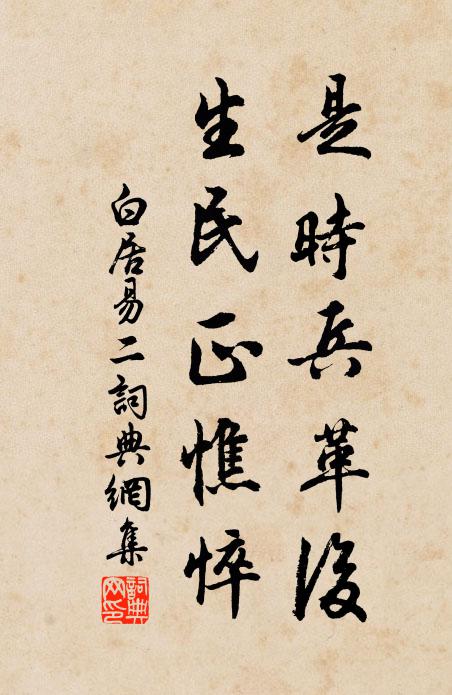 是時兵革後
生民正憔悴
白居易二詞典網集
詞典網印